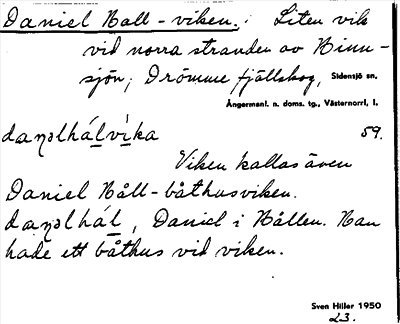 Daniel Håll-viken. : Liten vik
vid norra stranden av Hinn-
sjön; Drömme fjällskog, Sidensjö sn.
Ångermanl. n. doms. tg., Västernorrl. l.
59.
Viken kallas även
Daniel Håll-båthusviken.
, Daniel i Hållen. Han
hade ett båthus vid viken.
Sven Hiller 1950
23.